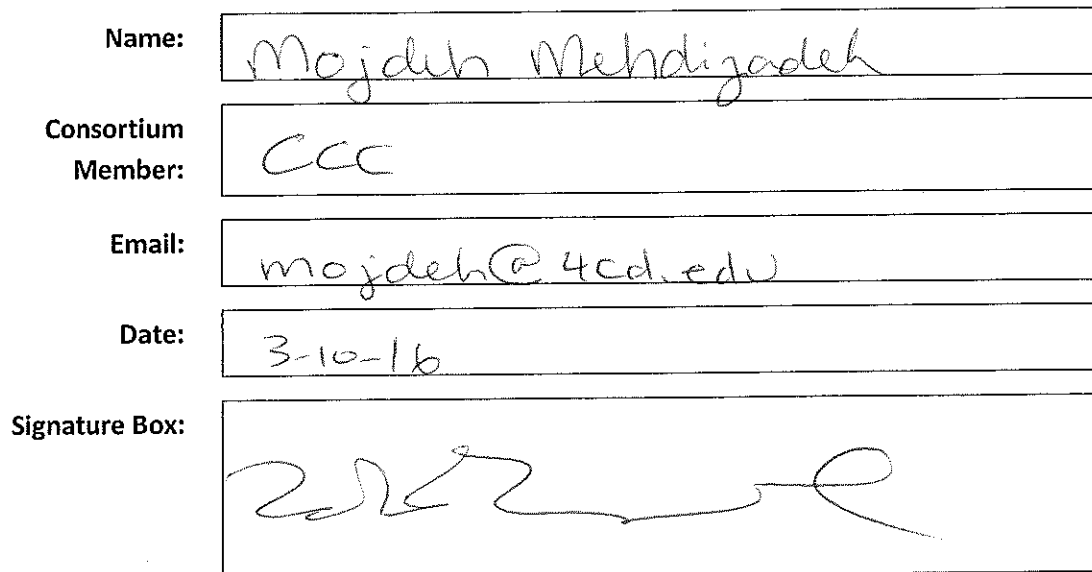 Name: Mojdeh Mehdizadeh
Consortium
Member: CCC
Email: mojdeh@4cd.edu
Date: 3-10-16
Signature Box: